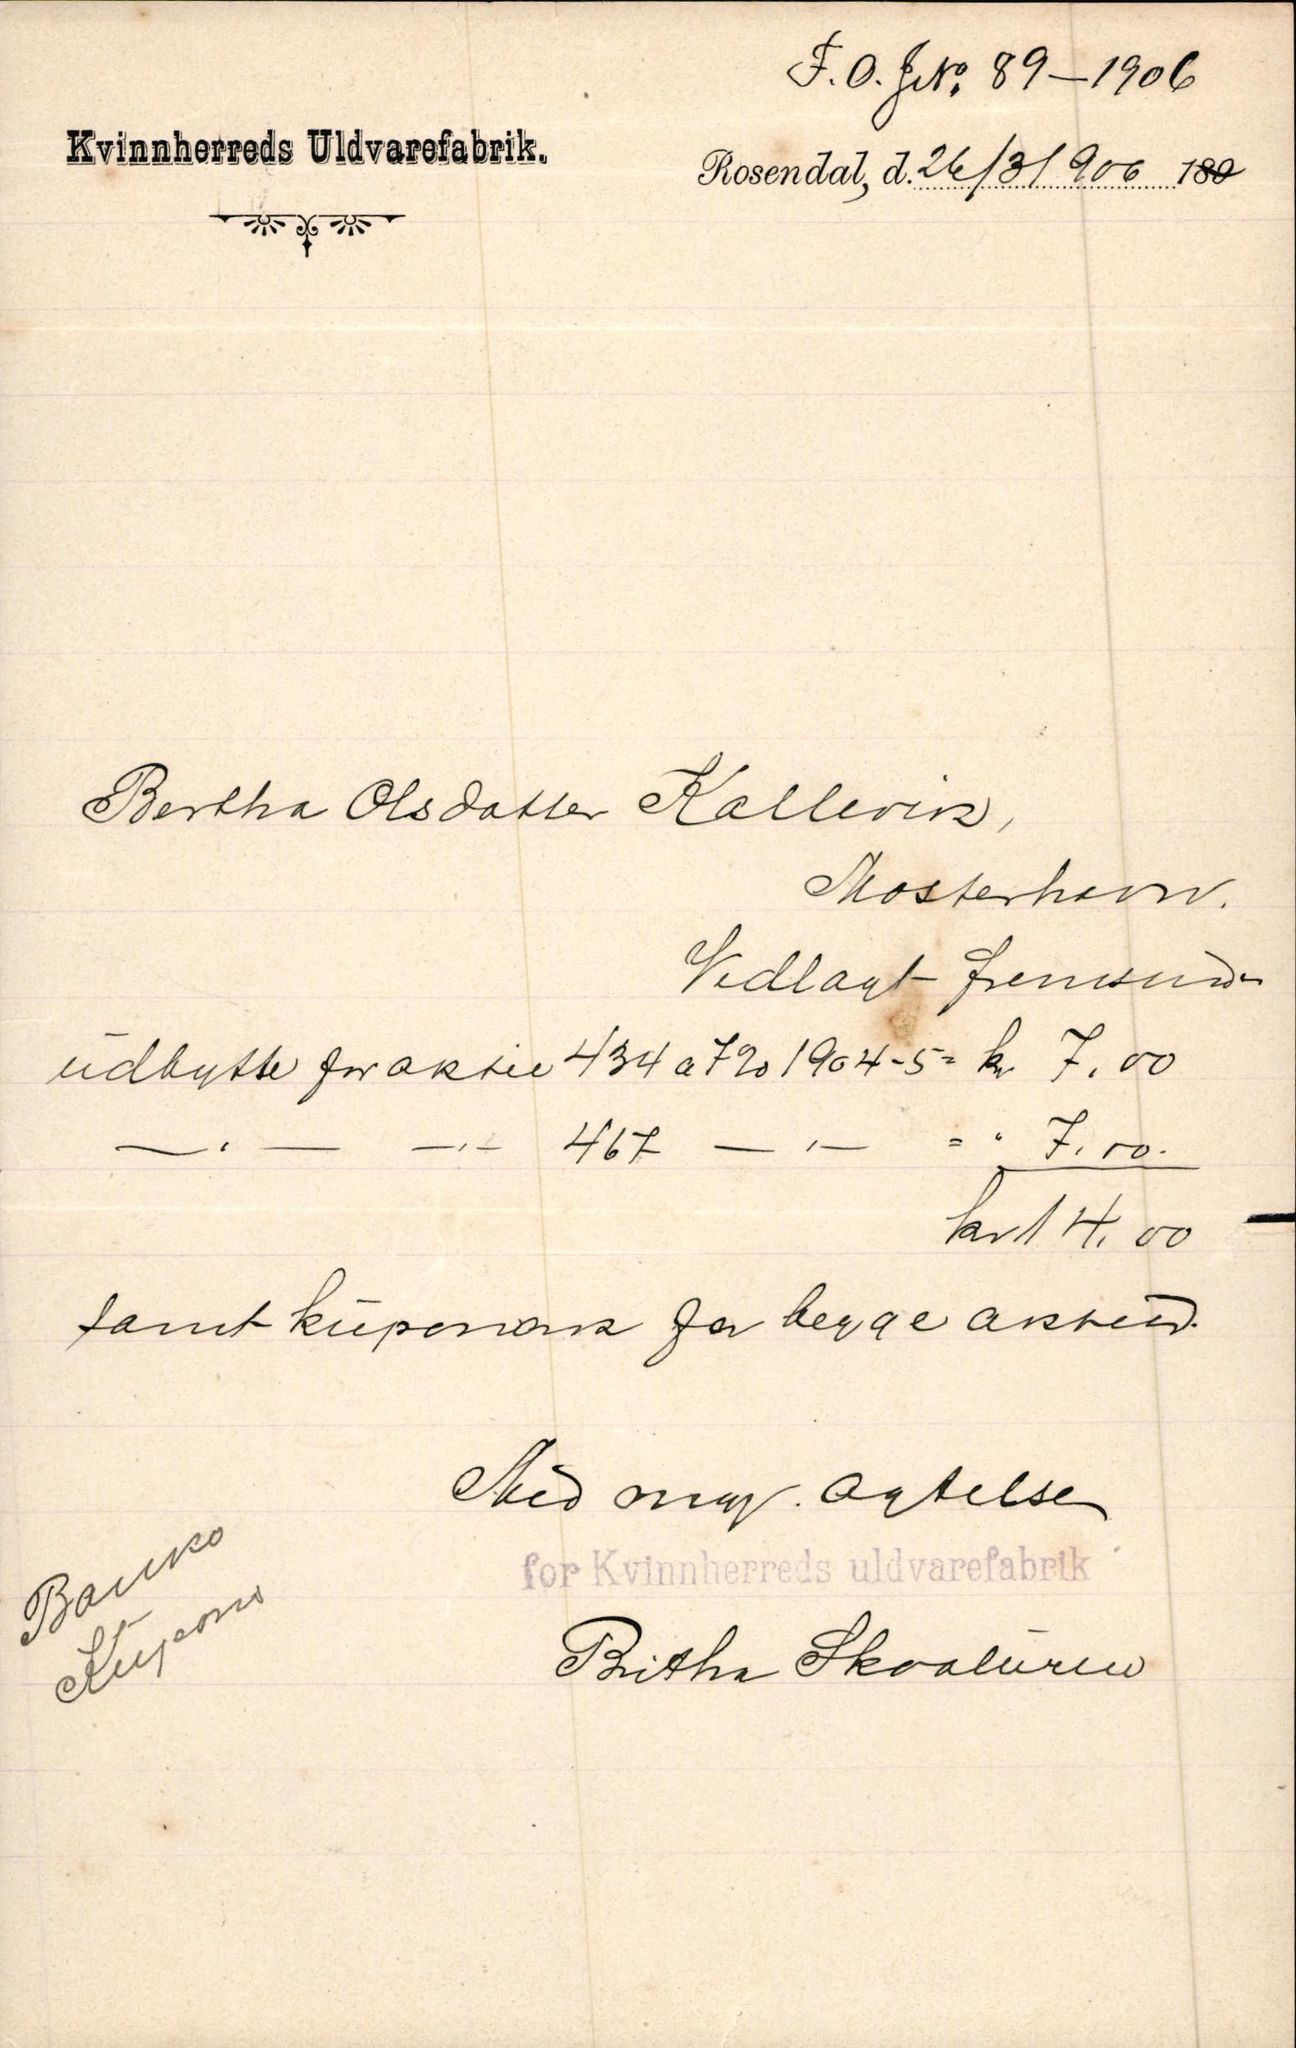 F. O. J.No. 89—1906
Kvinnherreds Uldvarefabrik.
Rosendal, d. 26/3 1906 180
Bertha Olsdatter Kallevik,
Mosterhavn.
Vedlagt fremsend
udbytte for aktie 434 a 7% 1904-5 = kr 7.00
—„— —„— 467 —„— = „ 7.00.
kr 14.00
samt kuponark for begge aktier.
Med megt. agtelse
for Kvinnherreds uldvarefabrik
Britha Skaaluren
Banko
Kupons